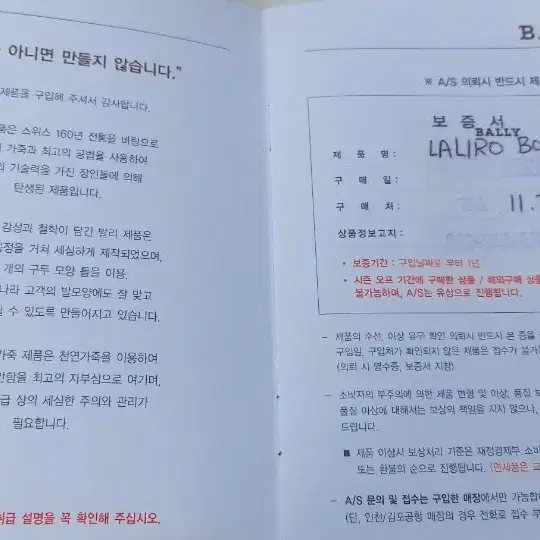 아니면 만들지 않습니다."
제품을 구입해 주셔서 감사합니다.
스위스 160년 전통을 바탕으로
가죽과 최고의 공법을 사용하여
기술력을 가진 장인들에 의해
탄생된 제품입니다.
감성과 철학이 담긴 발리 제품은
공정을 거쳐 세심하게 제작되었으며,
개의 구두 모양 틀을 이용.
고객의 발모양에도 잘 맞고
수 있도록 만들어지고 있습니다.
제품은 천연가죽을 이용하여
최고의 자부심으로 여기며,
상의 세심한 주의와 관리가
필요합니다.
설명을 꼭 확인해 주십시오.
※ A/S 의뢰시 반드시
보 증 서
BALLY
제 품 명 : LALIRO
구 매 일 :
구 매 처 : 11.
상품정보고지 :
• 보증기간 : 구입날짜로 부터 1년
• 시즌 오프 기간에 구매한 상품 / 해외구매
불가능하며, A/S는 유상으로 진행됩니다.
– 제품의 수선, 이상 유무 확인 의뢰시 반드시 본 증을
구입일, 구입처가 확인되지 않은 제품은 접수가
(의뢰 시 영수증, 보증서 지참)
– 소비자의 부주의에 의한 제품 변형 및 이상, 품질
품질 이상에 대해서는 보상의 책임을 지지 않으나,
드립니다.
■ 제품 이상시 보상처리 기준은 재정경제부
또는 환불의 순으로 진행됩니다. (면세품은
– A/S 문의 및 접수는 구입한 매장에서만
(단, 인천/김포공항 매장의 경우 전화로 접수